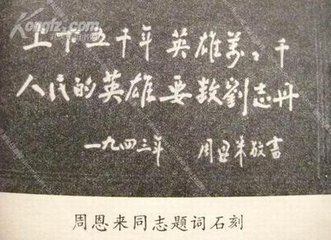 上下五千年 英雄万万千
人民的英雄要数劉志丹
一九四三年 周恩来敬書
周恩来同志题词石刻